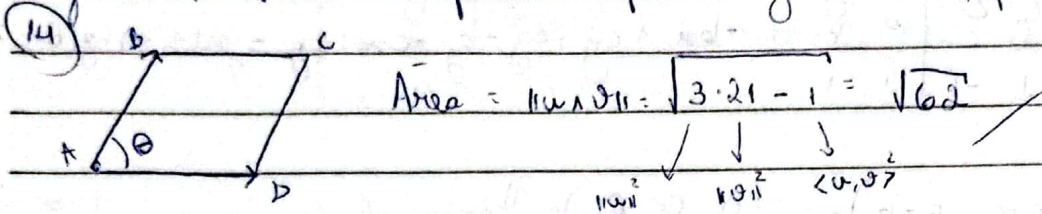 14
B C
Area = ||u∧v|| = √(3·21 - 1) = √62
A θ
D ||u||² ||v||² <u,v>²